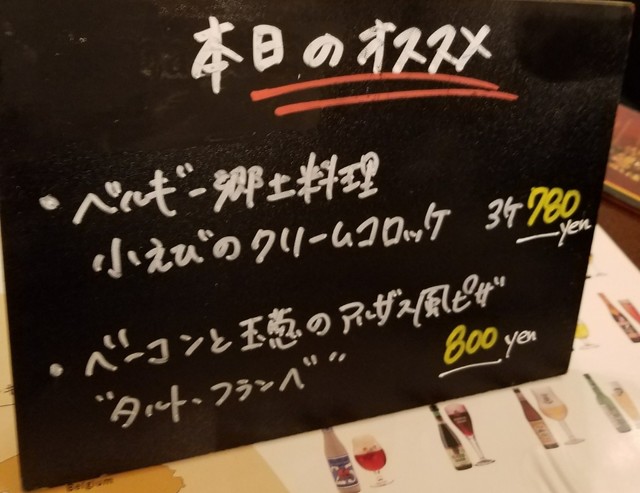 本日のオススメ
・ベルギー郷土料理
小えびのクリームコロッケ 3ケ 780 yen
・ベーコンと玉葱のアルザス風ピザ
"タルト・フランベ" 800 yen
Belgium